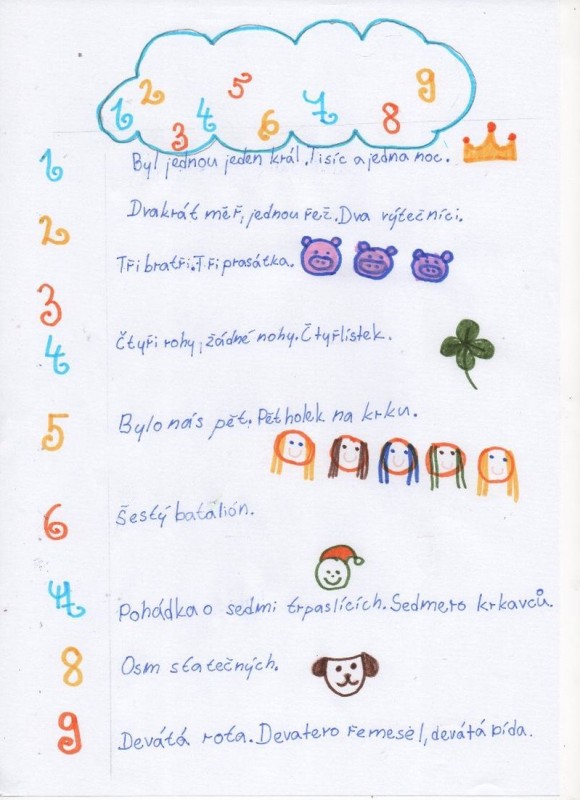 1 2 3 4 5 6 7 8 9
1 Byl jednou jeden král. Tisíc a jedna noc.
2 Dvakrát měř, jednou řež. Dva výtečníci.
3 Tři bratři. Tři prasátka.
4 Čtyři rohy, žádné nohy. Čtyřlístek.
5 Bylo nás pět. Pět holek na krku.
6 Šestý batalión.
7 Pohádka o sedmi trpaslících. Sedmero krkavců.
8 Osm statečných.
9 Devátá rota. Devatero řemesel, devátá bída.